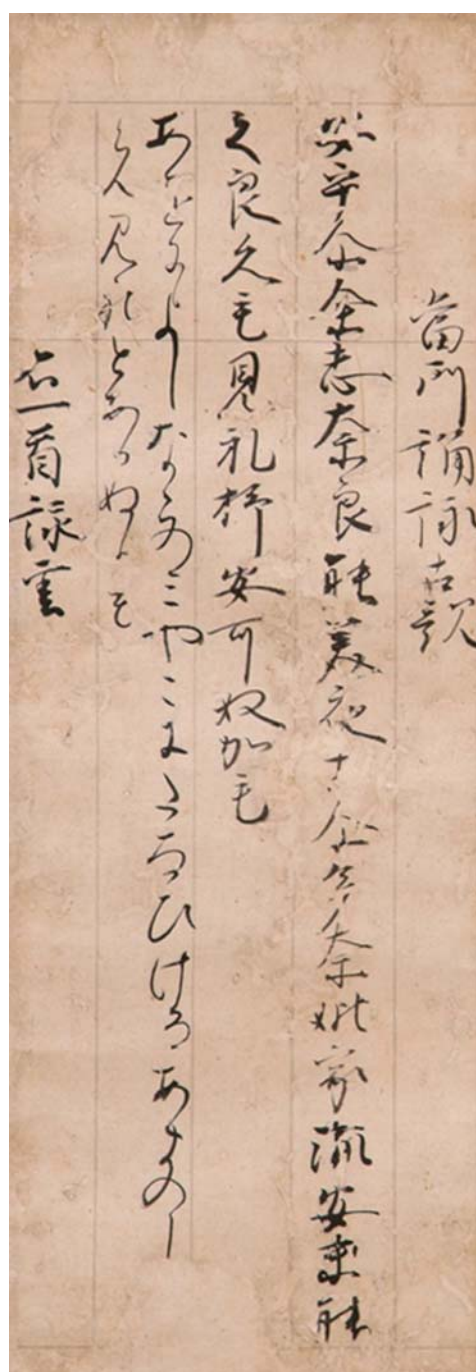 當所誦詠古歌
安乎尓余志奈良能美夜古尓多奈妣家流安麻能
之良久毛見礼杼安可奴加毛
あをによしならのみやこにたなひけるあまのし
らくも見れとあかぬかも
右一首詠雲